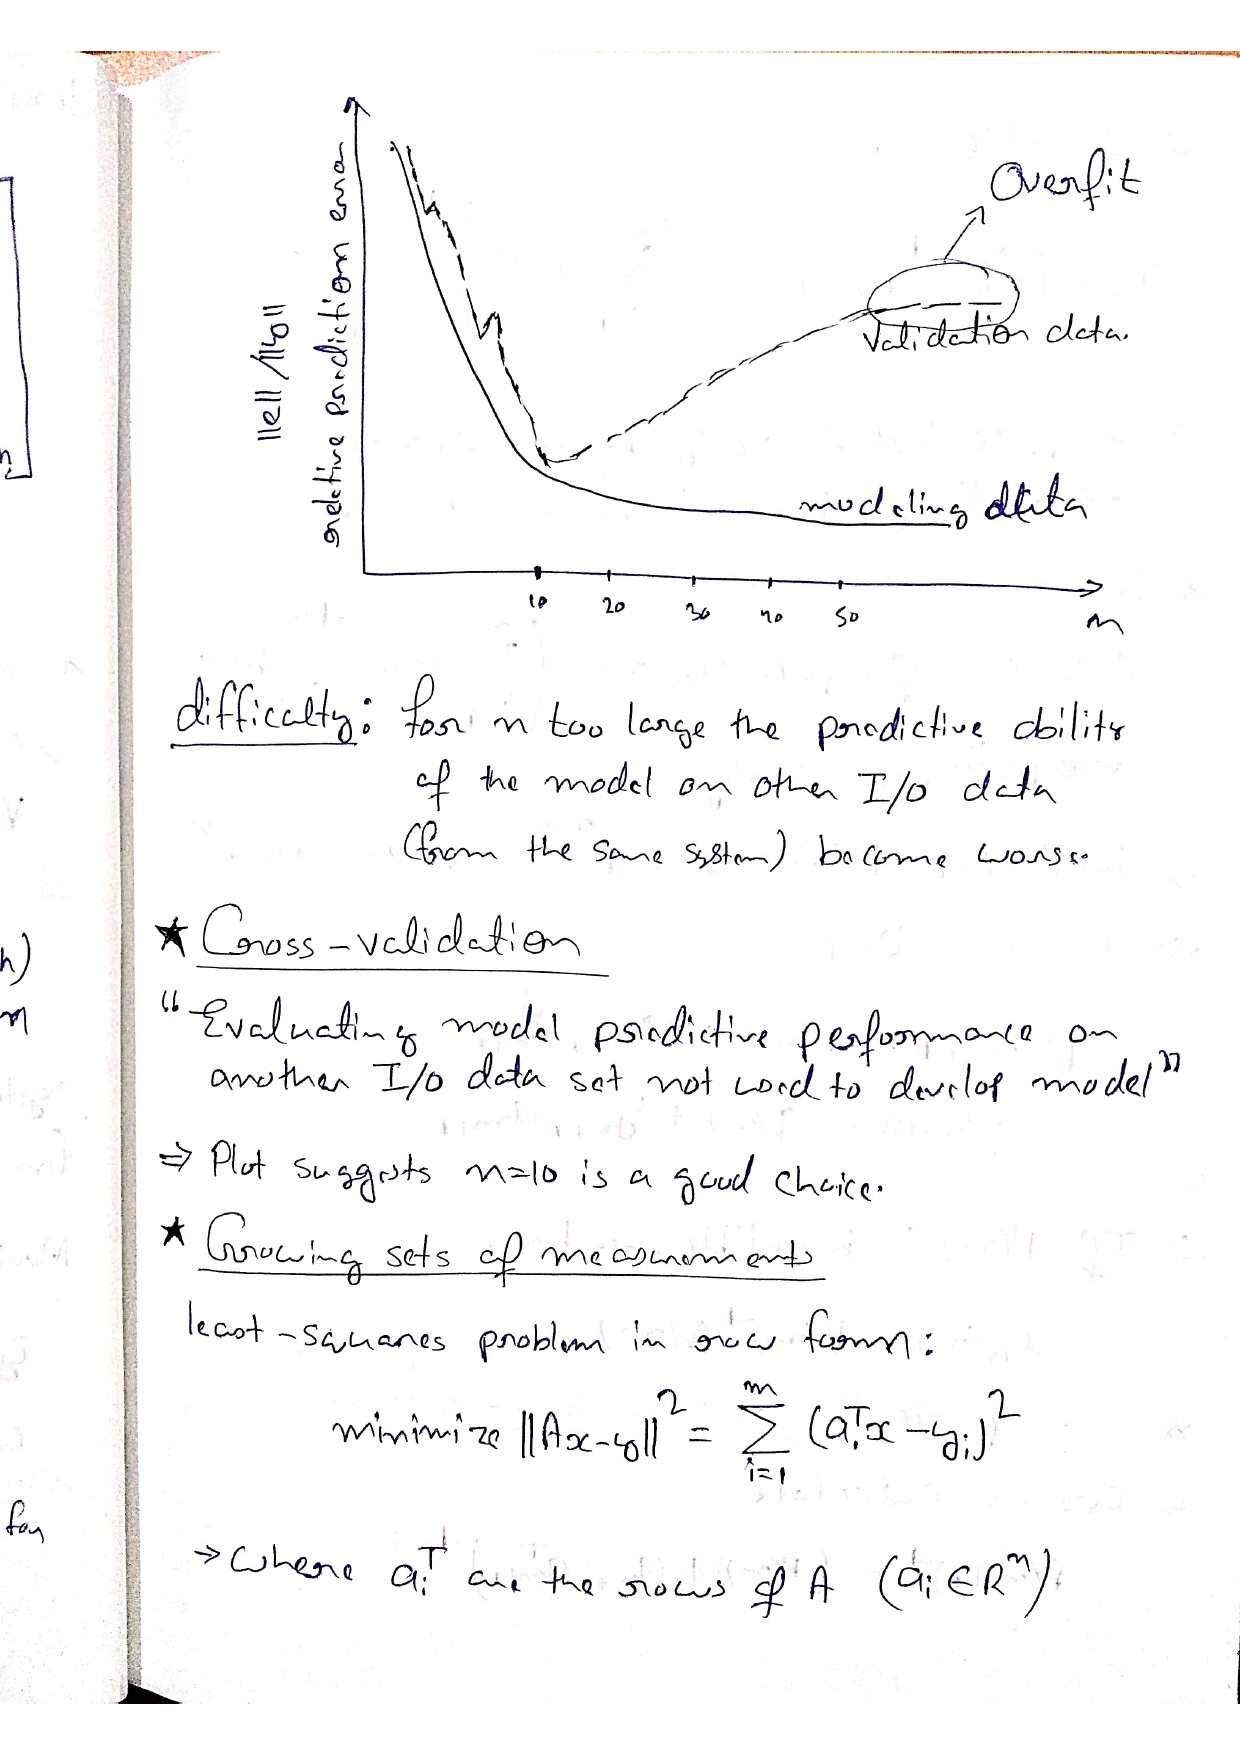 Overfit
||e||/||y||
relative prediction error
validation data.
modeling data
10 20 30 40 50
n
difficalty: for n too large the predictive ability
of the model on other I/O data
(from the same system) become worse.
★ Cross-validation
"Evaluating model predictive performance on
another I/O data set not used to develop model"
⇒ Plot suggests n=10 is a good choice.
★ Growing sets of measurements
least-squares problem in row form:
minimize ||Ax-y||² = Σ_{i=1}^{m} (aᵢᵀx - yᵢ)²
→ where aᵢᵀ are the rows of A (aᵢ ∈ Rⁿ)
h)
n
for